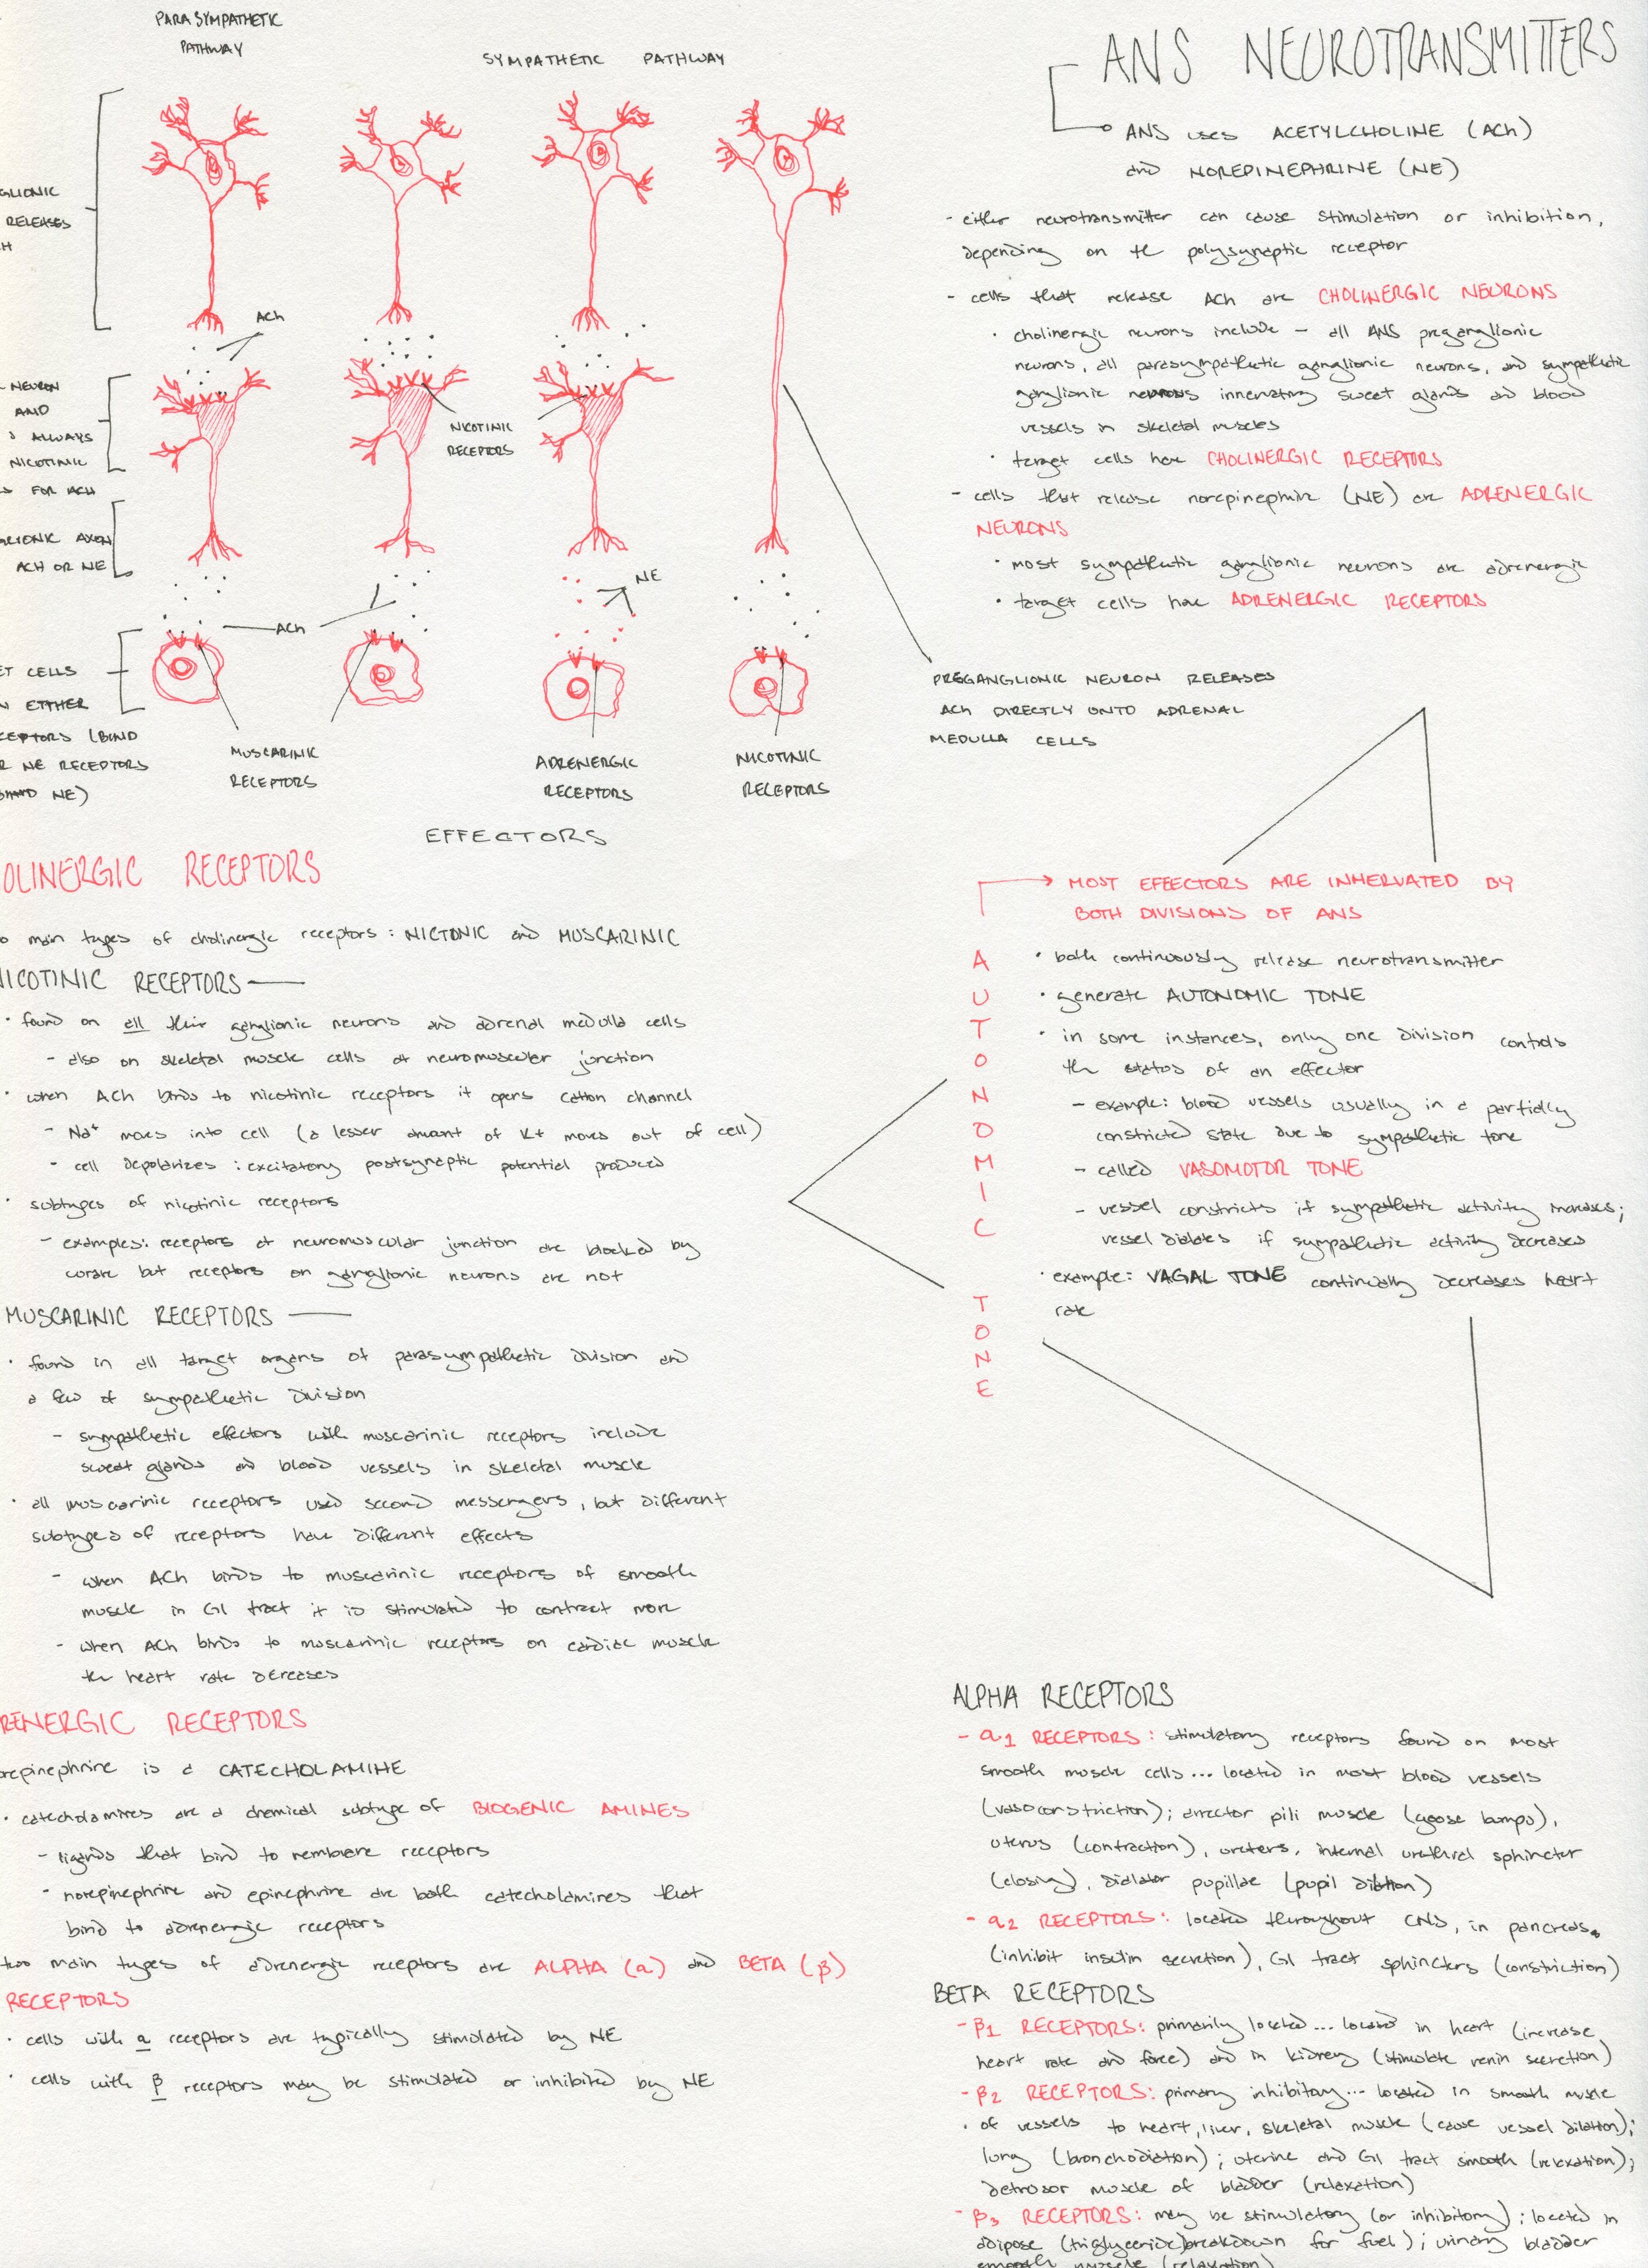 PARASYMPATHETIC
PATHWAY
SYMPATHETIC PATHWAY
GLIONIC
RELEASES
H
ACh
- NEURON
AND
S ALWAYS
NICOTINIC
S FOR ACH
NICOTINIC
RECEPTORS
GLIONIC AXON
ACH OR NE
NE
ACh
ET CELLS
N EITHER
CEPTORS (BIND
R NE RECEPTORS
NE)
MUSCARINIC
RECEPTORS
ADRENERGIC
RECEPTORS
NICOTINIC
RECEPTORS
EFFECTORS
ANS NEUROTRANSMITTERS
ANS uses ACETYLCHOLINE (ACh)
and NOREPINEPHRINE (NE)
- either neurotransmitter can cause stimulation or inhibition,
depending on the polysynaptic receptor
- cells that release ACh are CHOLINERGIC NEURONS
• cholinergic neurons include - all ANS preganglionic
neurons, all parasympathetic ganglionic neurons, and sympathetic
ganglionic neurons innervating sweat glands and blood
vessels in skeletal muscles
• target cells have CHOLINERGIC RECEPTORS
- cells that release norepinephrine (NE) are ADRENERGIC
NEURONS
• most sympathetic ganglionic neurons are adrenergic
• target cells have ADRENERGIC RECEPTORS
PREGANGLIONIC NEURON RELEASES
ACh DIRECTLY ONTO ADRENAL
MEDULLA CELLS
OLINERGIC RECEPTORS
o main types of cholinergic receptors : NICTONIC and MUSCARINIC
NICOTINIC RECEPTORS —
• found on all their ganglionic neurons and adrenal medulla cells
- also on skeletal muscle cells at neuromuscular junction
• when ACh binds to nicotinic receptors it opens cation channel
- Na+ moves into cell (a lesser amount of K+ moves out of cell)
- cell depolarizes : excitatory postsynaptic potential produced
• subtypes of nicotinic receptors
- examples: receptors at neuromuscular junction are blocked by
curare but receptors on ganglionic neurons are not
MUSCARINIC RECEPTORS —
• found in all target organs of parasympathetic division and
a few of sympathetic division
- sympathetic effectors with muscarinic receptors include
sweat glands and blood vessels in skeletal muscle
• all muscarinic receptors used second messengers, but different
subtypes of receptors have different effects
- when ACh binds to muscarinic receptors of smooth
muscle in GI tract it is stimulated to contract more
- when ACh binds to muscarinic receptors on cardiac muscle
the heart rate decreases
RENERGIC RECEPTORS
orepinephrine is a CATECHOLAMINE
• catecholamines are a chemical subtype of BIOGENIC AMINES
- ligands that bind to membrane receptors
- norepinephrine and epinephrine are both catecholamines that
bind to adrenergic receptors
two main types of adrenergic receptors are ALPHA (α) and BETA (β)
RECEPTORS
• cells with α receptors are typically stimulated by NE
• cells with β receptors may be stimulated or inhibited by NE
AUTONOMIC TONE
MOST EFFECTORS ARE INNERVATED BY
BOTH DIVISIONS OF ANS
• both continuously release neurotransmitter
• generate AUTONOMIC TONE
• in some instances, only one division controls
the status of an effector
- example: blood vessels usually in a partially
constricted state due to sympathetic tone
- called VASOMOTOR TONE
- vessel constricts if sympathetic activity increases;
vessel dialates if sympathetic activity decreases
• example: VAGAL TONE continually decreases heart
rate
ALPHA RECEPTORS
- α1 RECEPTORS : stimulatory receptors found on most
smooth muscle cells... located in most blood vessels
(vasoconstriction); arrector pili muscle (goose bumps),
uterus (contraction), ureters, internal urethral sphincter
(closing), dialator pupillae (pupil dilation)
- α2 RECEPTORS : located throughout CNS, in pancreas
(inhibit insulin secretion), GI tract sphincters (constriction)
BETA RECEPTORS
- β1 RECEPTORS: primarily located... located in heart (increase
heart rate and force) and in kidney (stimulate renin secretion)
- β2 RECEPTORS: primary inhibitory... located in smooth muscle
• of vessels to heart, liver, skeletal muscle (cause vessel dilation);
lung (bronchodilation); uterine and GI tract smooth (relaxation);
detrusor muscle of bladder (relaxation)
- β3 RECEPTORS: may be stimulatory (or inhibitory); located in
adipose (triglyceride breakdown for fuel); urinary bladder
smooth muscle (relaxation)